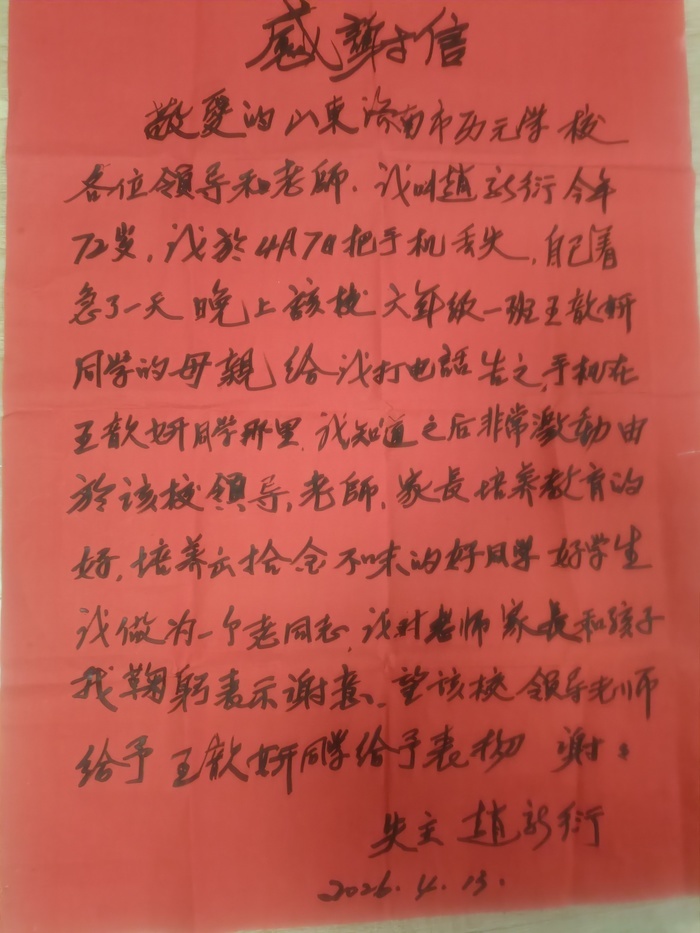 感謝信
敬愛的山東济南市历元学校
各位領导和老師.我叫趙新衍今年
72岁,我於4月7日把手机丢失,自己着
急了一天 晚上該校六年级一班王歆妍
同学的母親 给我打电話告之,手机在
王歆妍同学那里.我知道之后非常激動由
於该校領导,老師,家長培养教育的
好,培养出拾金不昧的好同学 好学生
我做为一个老同志,我对老师家長和孩子
我鞠躬表示谢意、望该校領导老师
给予王歆妍同学给予表扬 谢:
失主 趙新衍
2026.4.13.